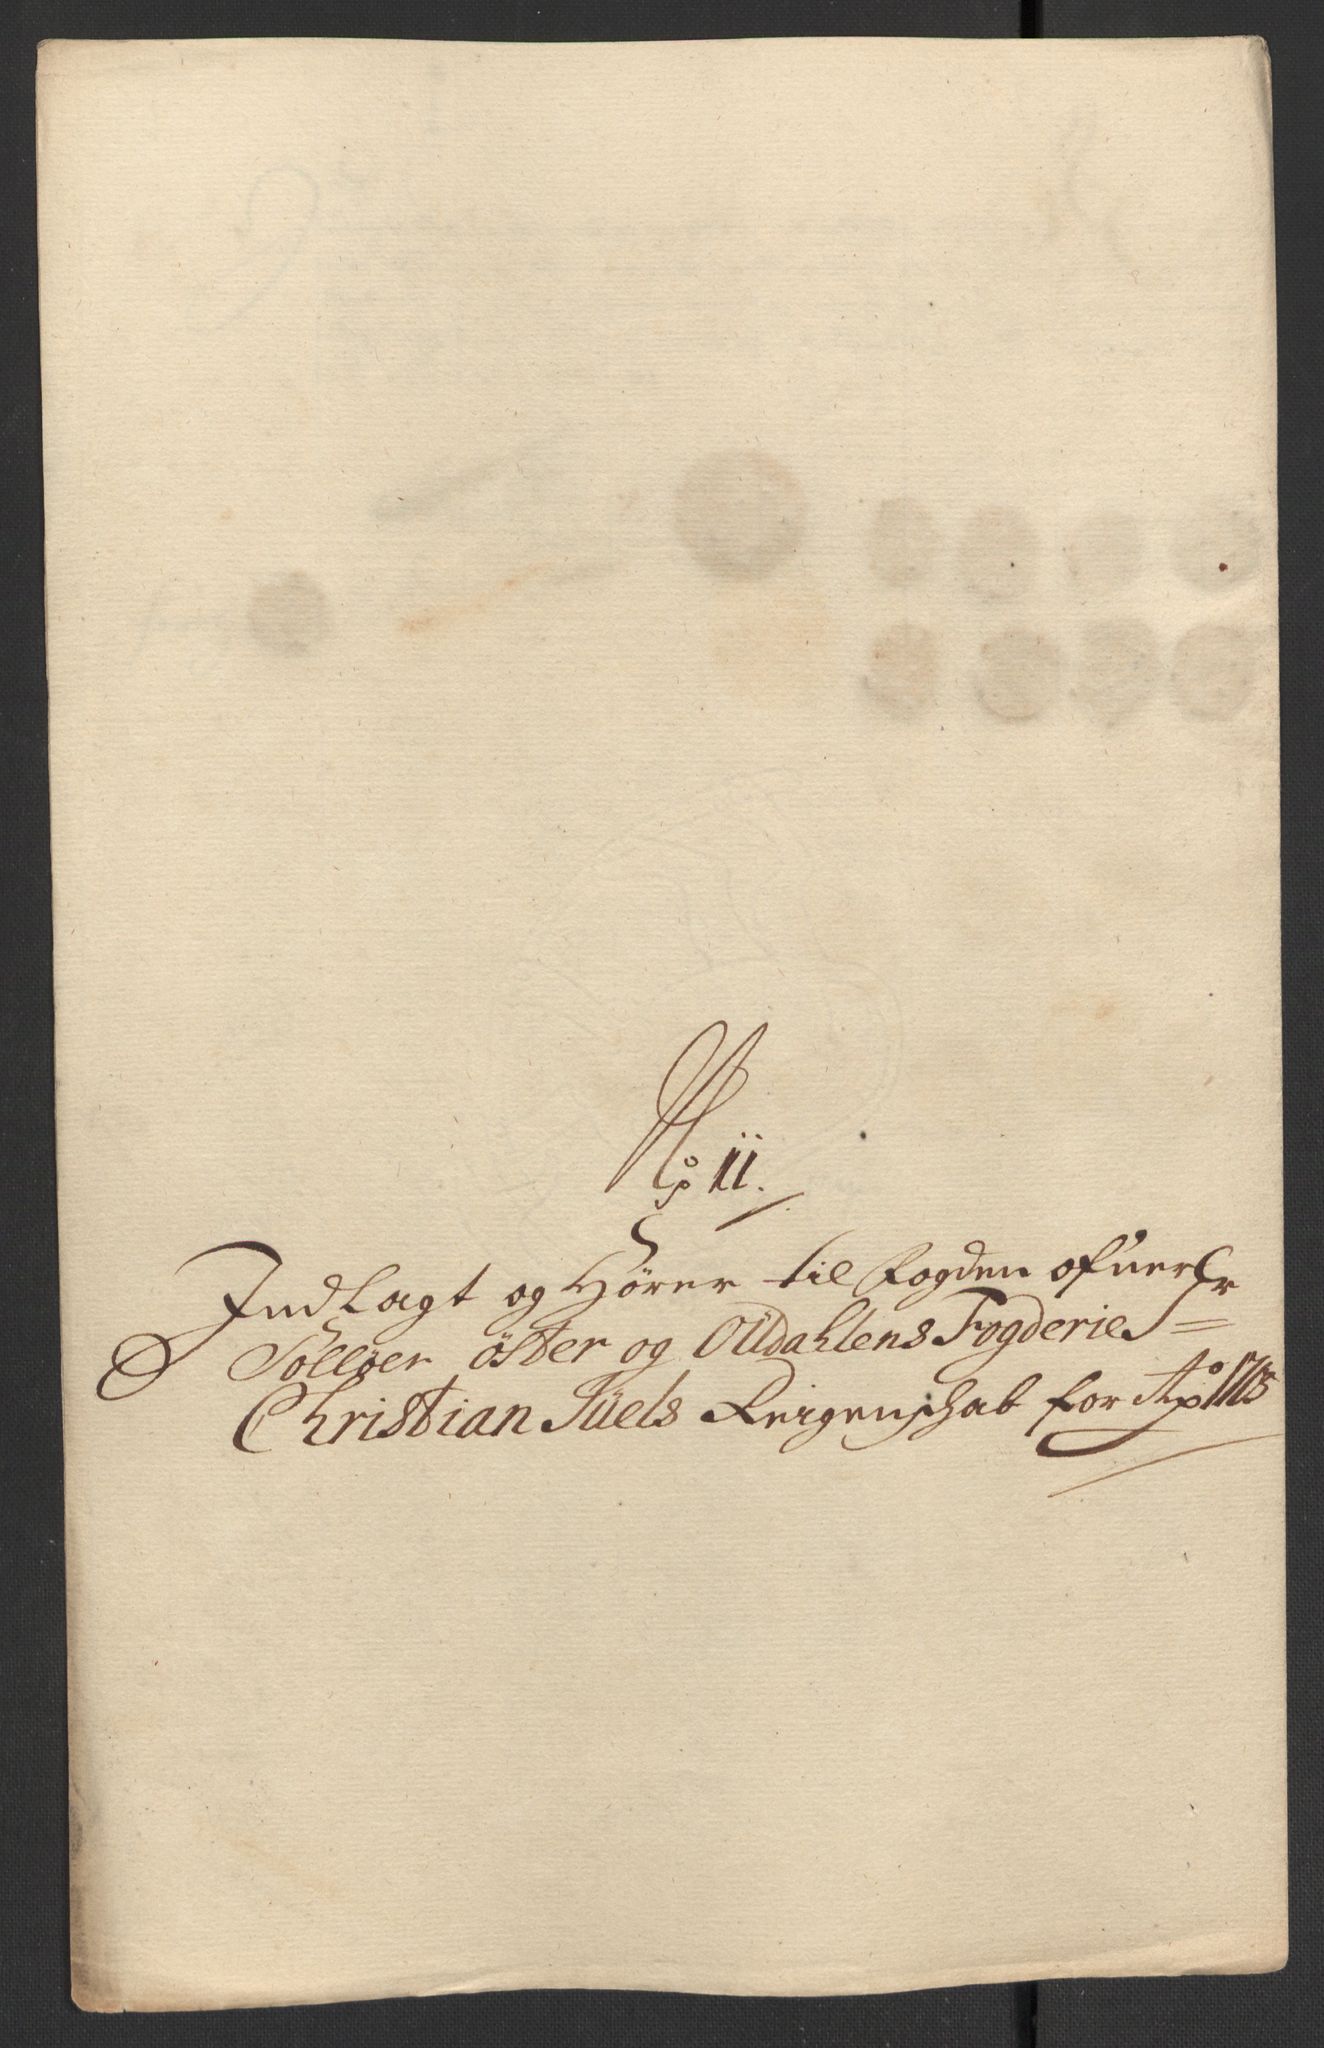 No 11.
Indlagt og Hører til fogden ofuer
Solløer öster og Oüdahlens Fogderie
Christian Juels Reigenschab for Ao 1703